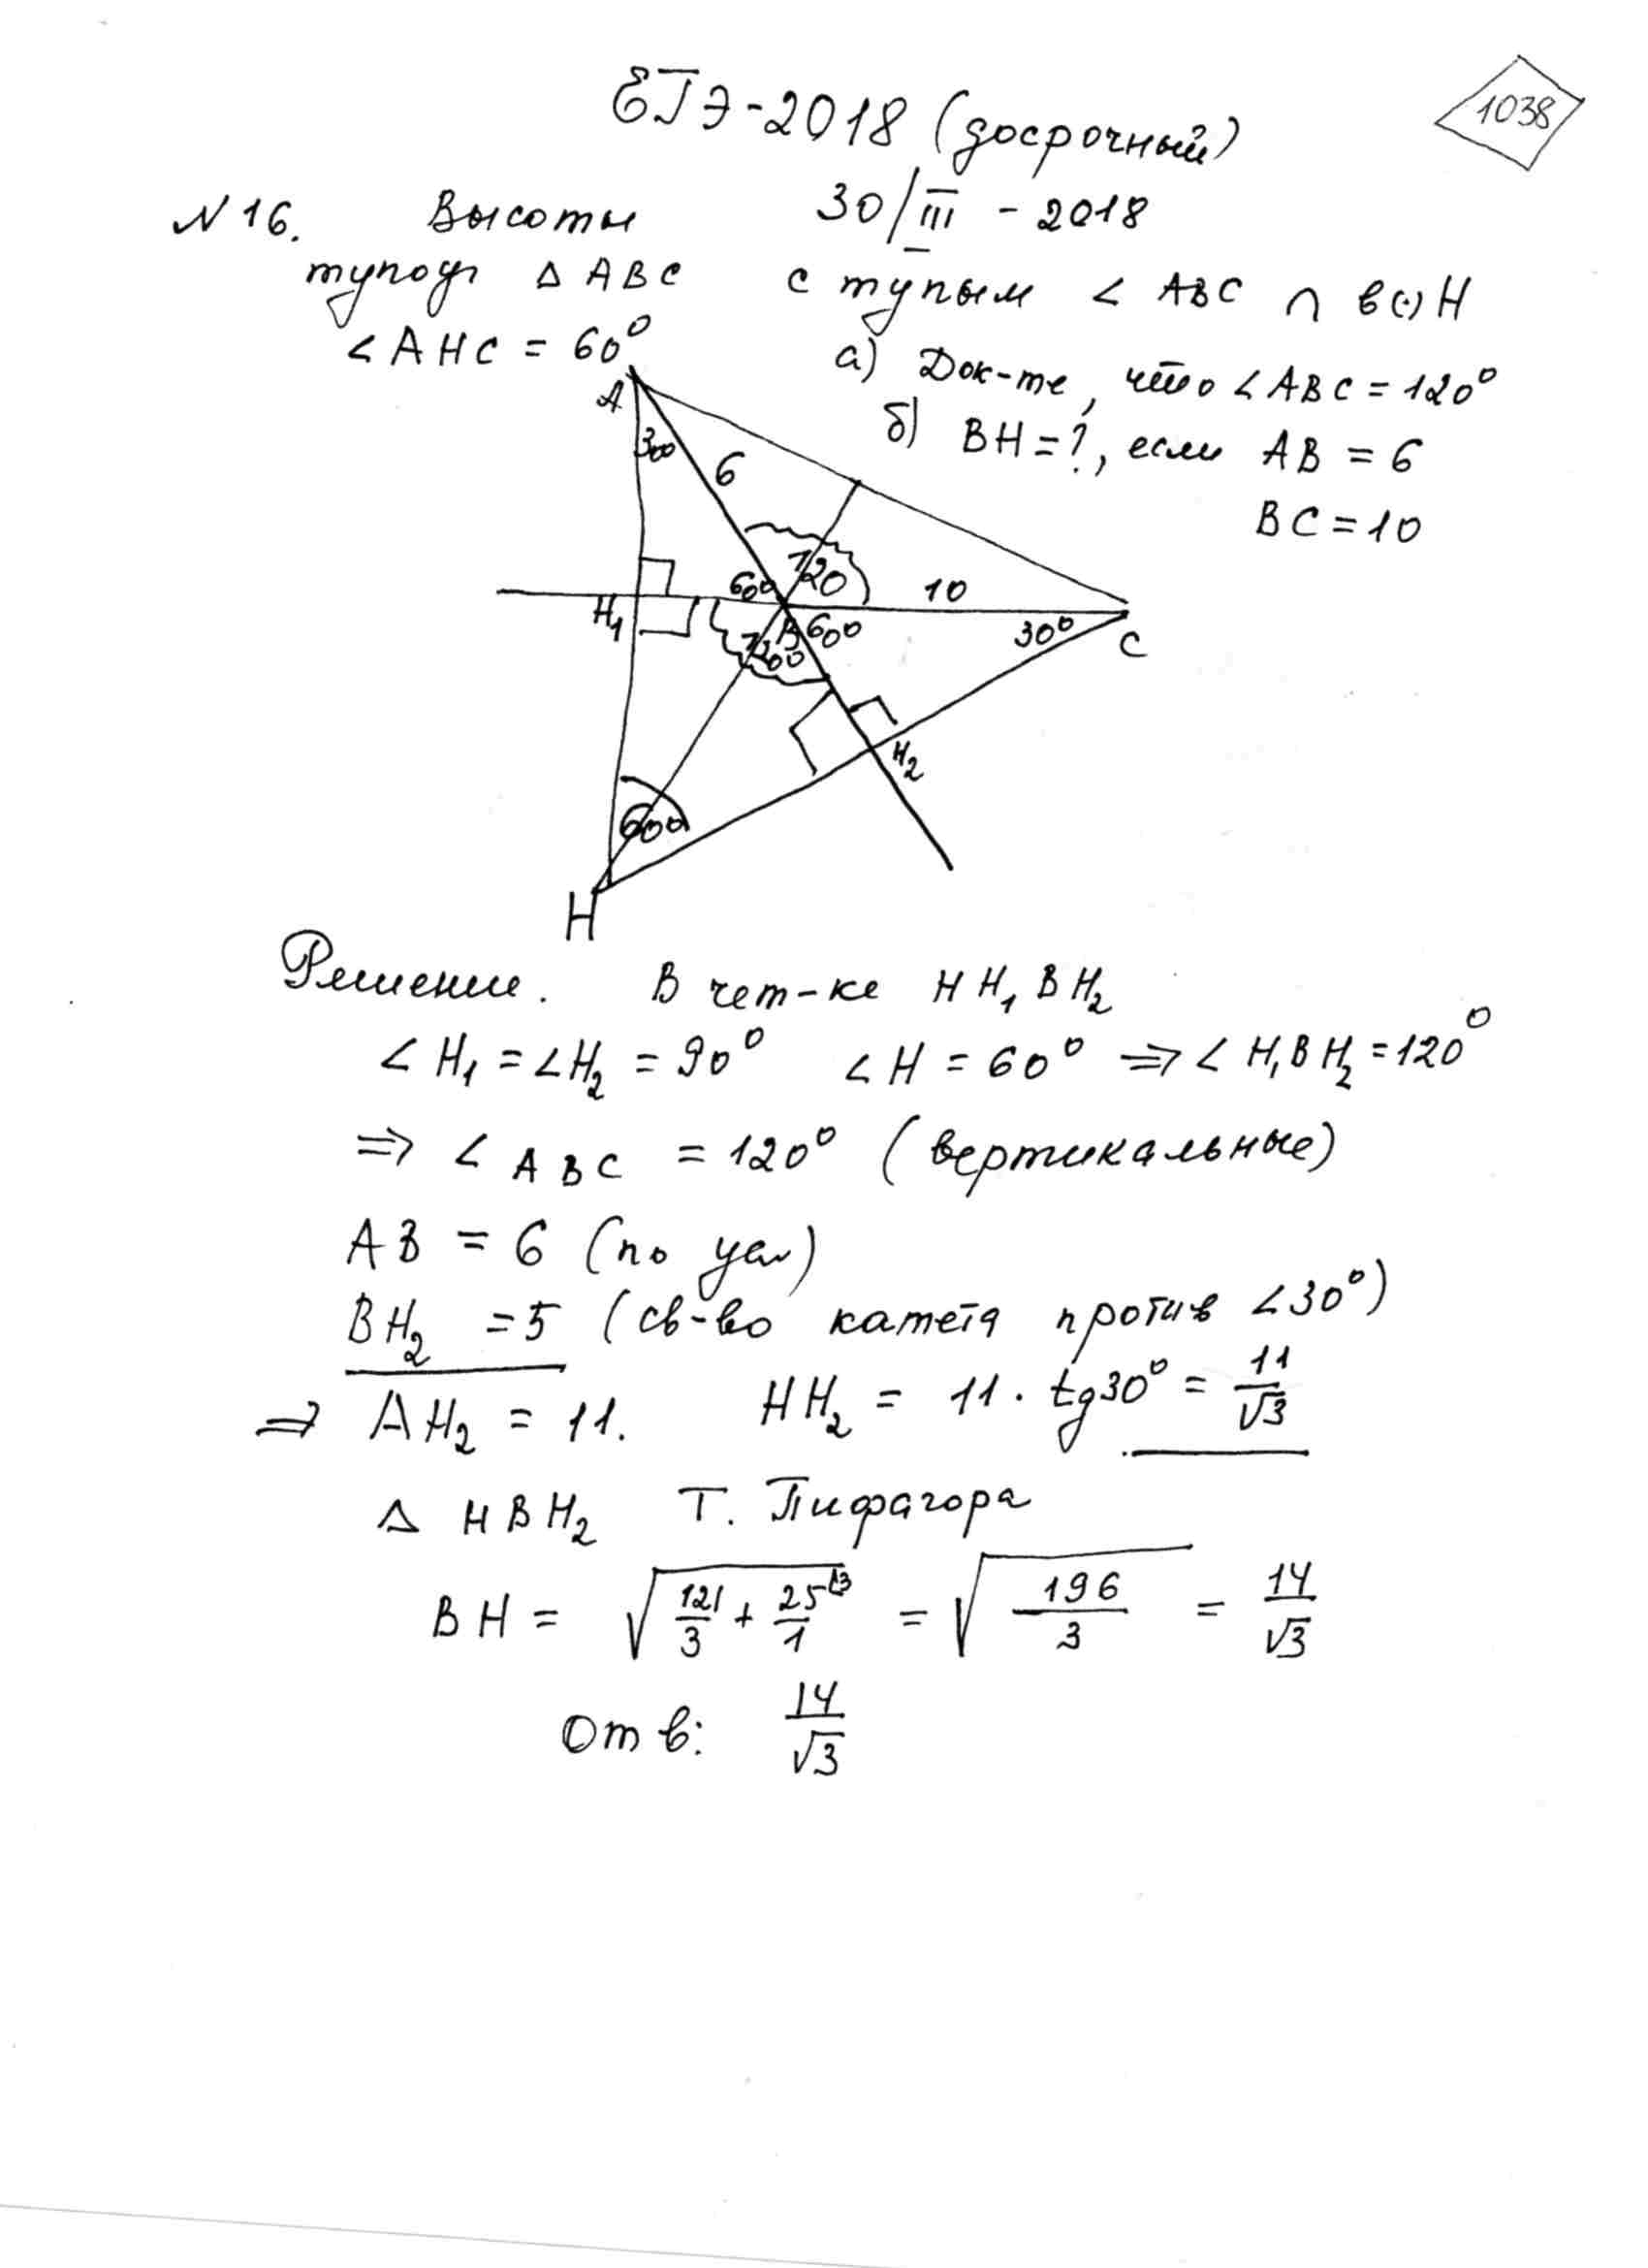 1038
ЕГЭ-2018 (досрочный)
30/III - 2018
N 16. Высоты
тупоуг △ ABC с тупым ∠ ABC ∩ в (·) H
∠AHC = 60°
а) Док-те, что ∠ABC = 120°
б) BH = ?, если AB = 6
BC = 10
A
30°
6
120
60°
10
H₁
B
60°
30°
C
120°
H₂
60°
H
Решение. В чет-ке HH₁BH₂
∠H₁ = ∠H₂ = 90° ∠H = 60° ⇒ ∠H₁BH₂ = 120°
⇒ ∠ABC = 120° (вертикальные)
AB = 6 (по усл)
BH₂ = 5 (св-во катета против ∠30°)
⇒ AH₂ = 11. HH₂ = 11 · tg30° = 11/√3
△ HBH₂ Т. Пифагора
BH = √(121/3 + 25/1 ⌊3) = √(196/3) = 14/√3
Отв: 14/√3